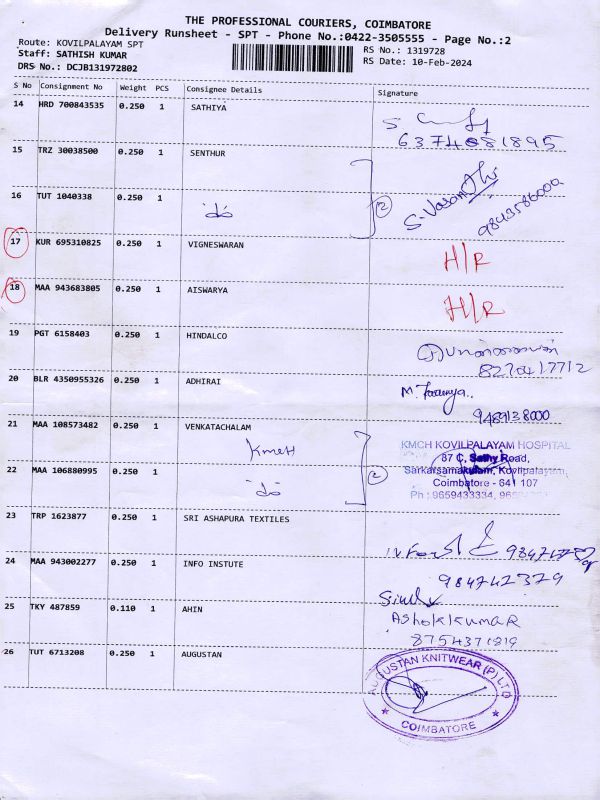 THE PROFESSIONAL COURIERS, COIMBATORE
Delivery Runsheet - SPT - Phone No.:0422-3505555 - Page No.:2
Route: KOVILPALAYAM SPT
Staff: SATHISH KUMAR
DRS No.: DCJB131972802
RS No.: 1319728
RS Date: 10-Feb-2024
S No Consignment No Weight PCS Consignee Details Signature
14 HRD 700843535 0.250 1 SATHIYA
6374081895
15 TRZ 30038500 0.250 1 SENTHUR
16 TUT 1040338 0.250 1
2
S. Vasanthi
9843586000
17 KUR 695310825 0.250 1 VIGNESWARAN H/R
18 MAA 943683805 0.250 1 AISWARYA H/R
19 PGT 6158403 0.250 1 HINDALCO
8270417712
20 BLR 4350955326 0.250 1 ADHIRAI
9489138000
21 MAA 108573482 0.250 1 VENKATACHALAM
KMCH
22 MAA 106880995 0.250 1
2
KMCH KOVILPALAYAM HOSPITAL
87 C, Sathy Road,
Sarkarsamakulam, Kovilpalayam,
Coimbatore - 641 107
Ph : 9659433334,
23 TRP 1623877 0.250 1 SRI ASHAPURA TEXTILES
24 MAA 943002277 0.250 1 INFO INSTUTE
984742329
25 TKY 487859 0.110 1 AHIN
Ashokkumar
8754371819
26 TUT 6713208 0.250 1 AUGUSTAN
AUGUSTAN KNITWEAR (P) LTD
COIMBATORE